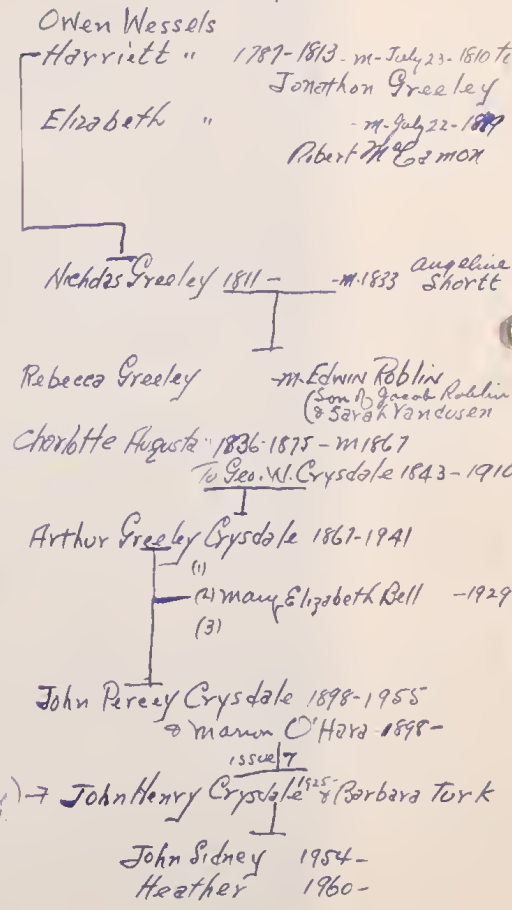 Owen Wessels
Harriett " 1787-1813 - m - July 23 - 1810 to
Jonathon Greeley
Elizabeth " - m - July 22 -
Robert McEamon
Nicholas Greeley 1811 - - m. 1833 Angeline
Shortt
Rebecca Greeley - m. Edwin Roblin
(Son of Jacob Roblin
& Sarah Vandusen
Charlotte Augusta " 1836-1875 - m 1867
To Geo. W. Crysdale 1843-1910
Arthur Greeley Crysdale 1867-1941
(1)
(2) Mary Elizabeth Bell -1929
(3)
John Percey Crysdale 1898-1955
& Marion O'Hara 1898-
issue 7
→ John Henry Crysdale 1925- & Barbara Turk
John Sidney 1954-
Heather 1960-